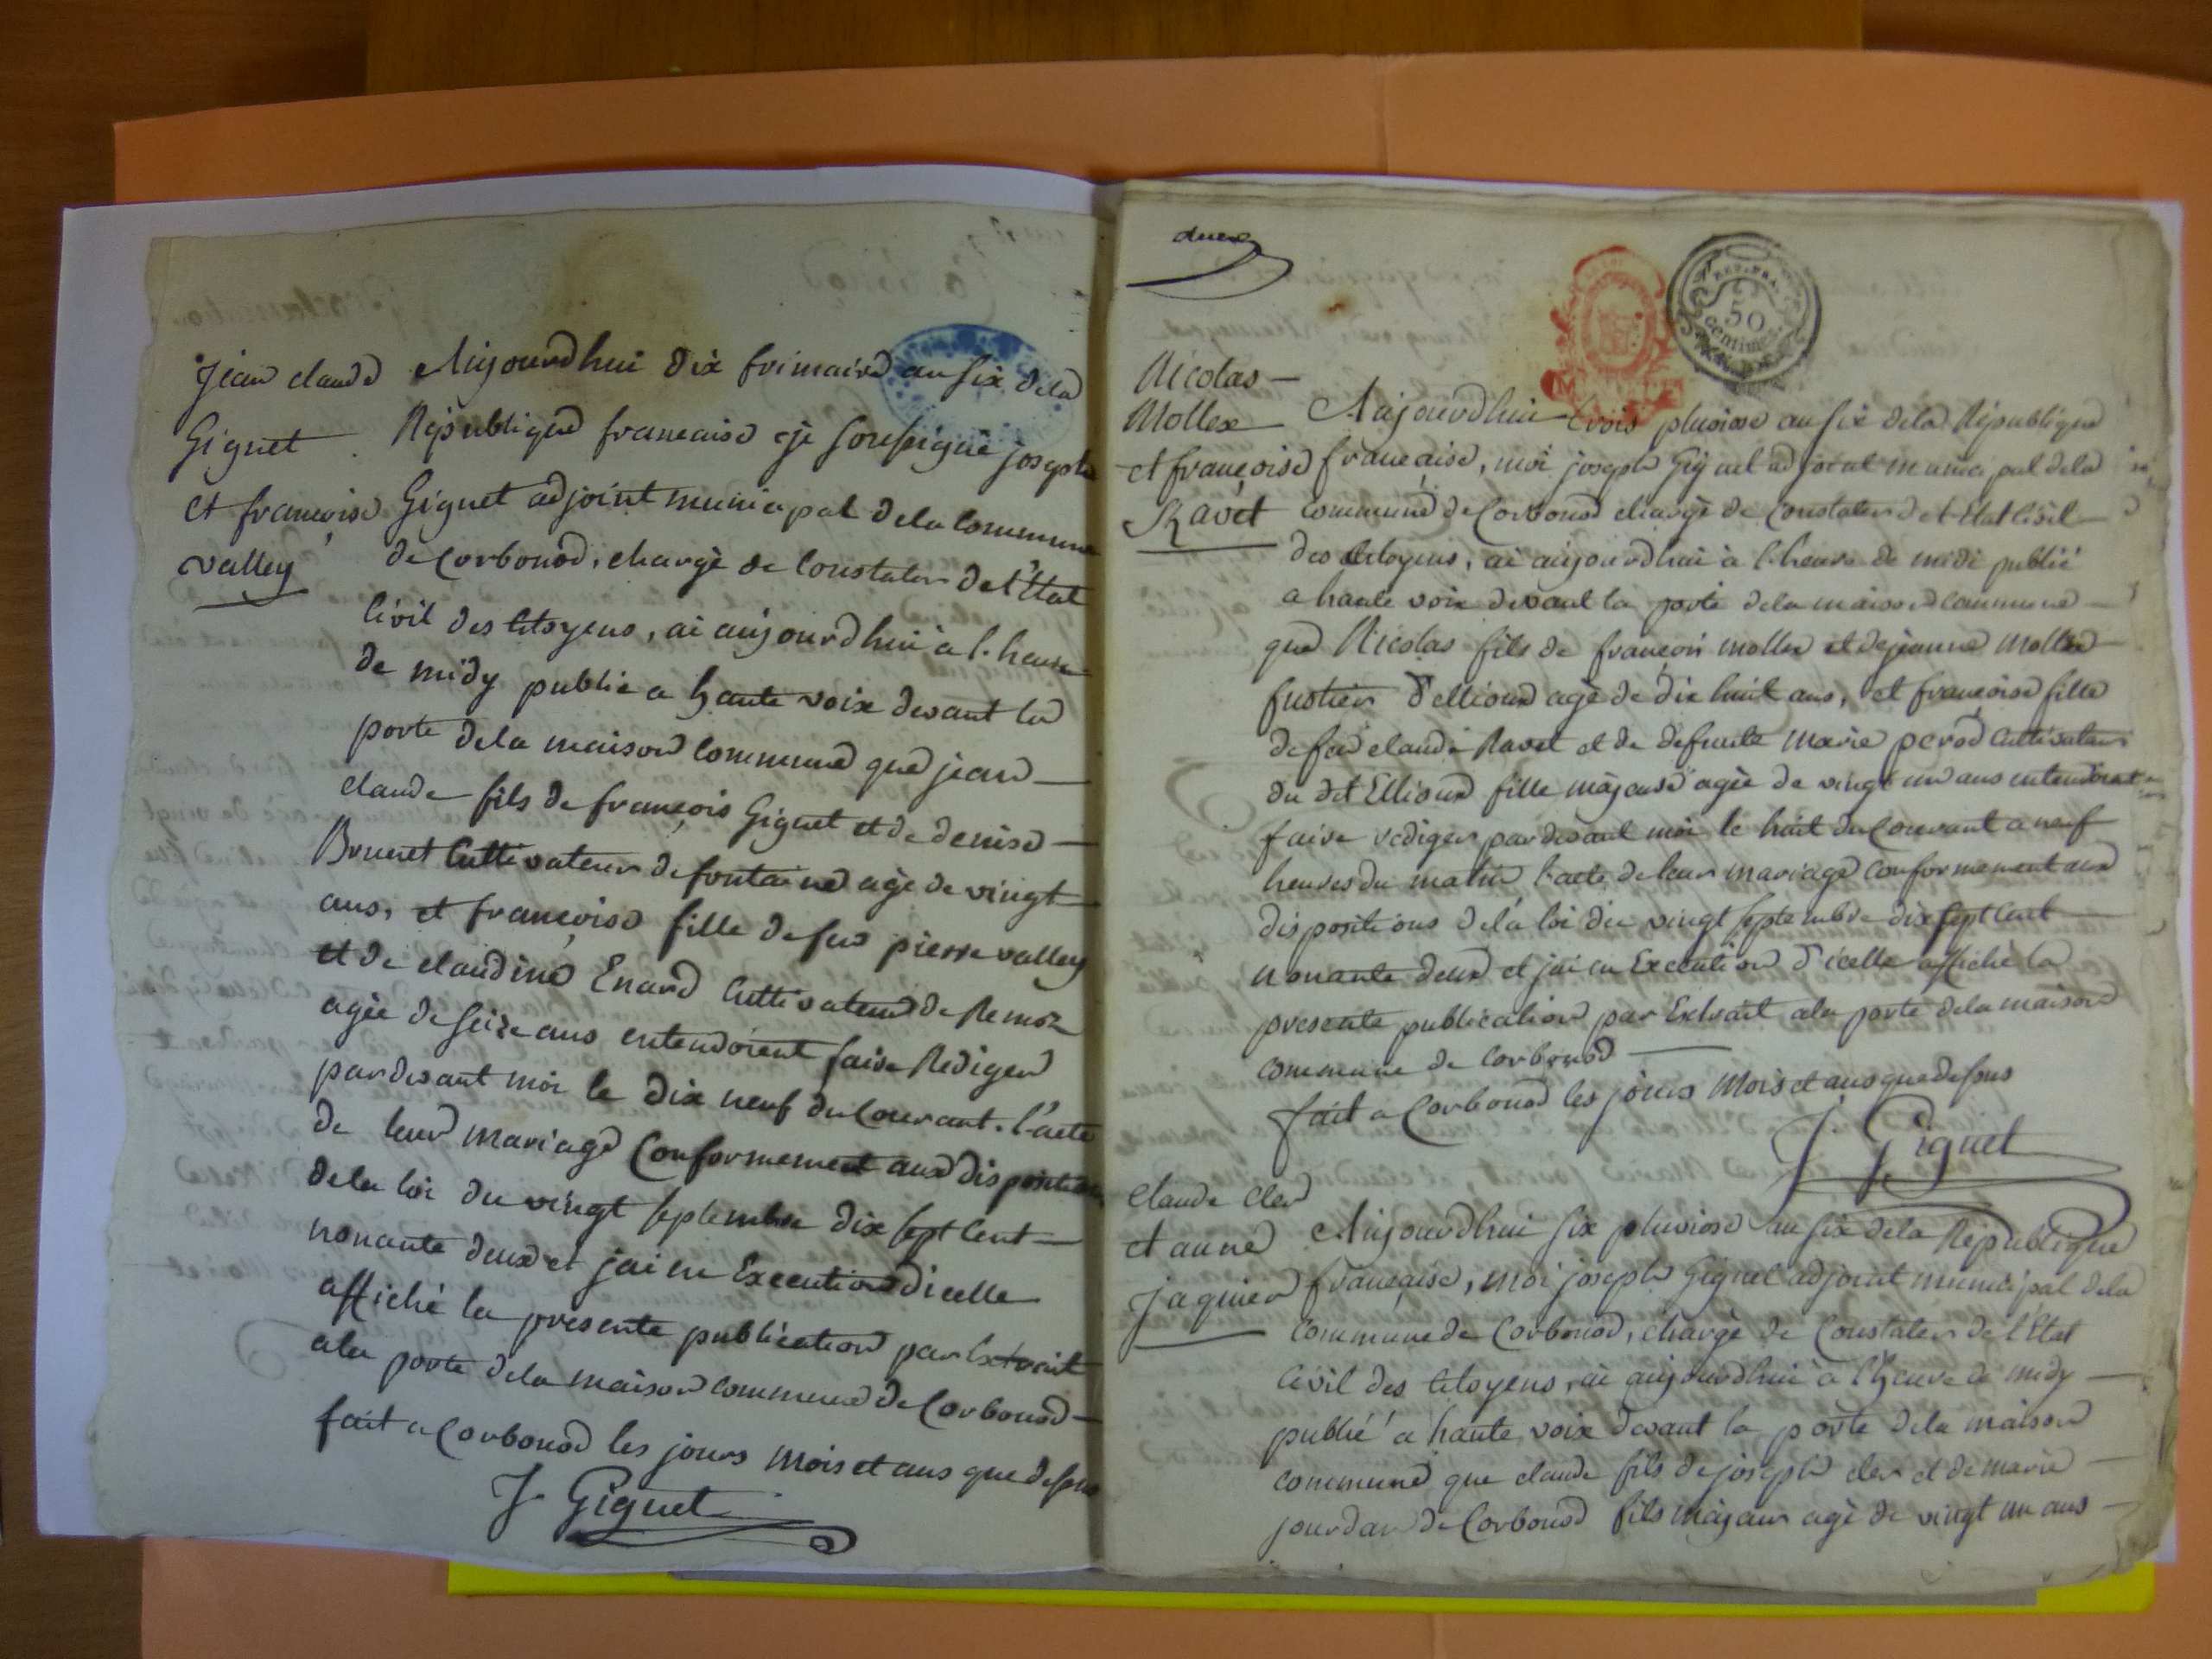 Jean claude
Giguet
et françoise
valley
Aujourdhui dix frimaire an six dela
République francaise je soussigné joseph
Giguet adjoint municipal dela Commune
de Corbonod, chargé de Constater de l'État
Civil des Citoyens, ai aujourdhui à l'heure
de midy publié a haute voix devant la
porte dela maison Commune que jean
claude fils de françois Giguet et de denise
Brunet Cultivateur de fontaine agé de vingt
ans, et françoise fille de feu pierre valley
et de claudine Enard Cultivateur de Remoz
agée de seize ans entendoient faire Rediger
pardevant moi le dix neuf du Courant l'acte
de leur mariage Conformement aux dispositions
dela loi du vingt septembre dix sept Cent
nonante deux et jai en Execution dicelle
affiché la presente publication par Extrait
ala porte dela maison commune de Corbonod
fait a Corbonod les jours mois et ans que dessus
J. Giguet
deux
REP. FRA.
50
centimes.
Nicolas
Mollex
et françoise
Ravet
Aujourdhui trois pluviose an six dela République
française, moi joseph Giguet adjoint municipal dela
commune de Corbonod chargé de Constater de l'Etat Civil
des Citoyens, ai aujourdhui à l'heure de midi publié
a haute voix devant la porte dela maison commune
que Nicolas fils de françois mollex et de jeanne Mollex
fustier d'ellioux agé de dix huit ans, et françoise fille
de feu claude Ravet et de defunte marie perod Cultivateur
du dit Ellioux fille majeure agée de vingt un ans entendoient
faire rediger pardevant moi le huit du Courant a neuf
heures du matin l'acte de leur mariage conformement aux
dispositions dela loi du vingt septembre dix sept Cent
nonante deux et jai en Execution d'icelle affiché la
presente publication par Extrait ala porte dela maison
commune de Corbonod
fait a Corbonod les jours Mois et ans que dessus
J. Giguet
Claude Cler
et anne
Jaquier
Aujourdhui six pluviose an six dela République
française, moi joseph Giguet adjoint municipal dela
Commune de Corbonod, chargé de Constater de l'Etat
Civil des Citoyens, ai aujourdhui à l'heure de midy
publié a haute voix devant la porte dela maison
commune que claude fils de joseph cler et de marie
jourdan de Corbonod fils majeur agé de vingt un ans